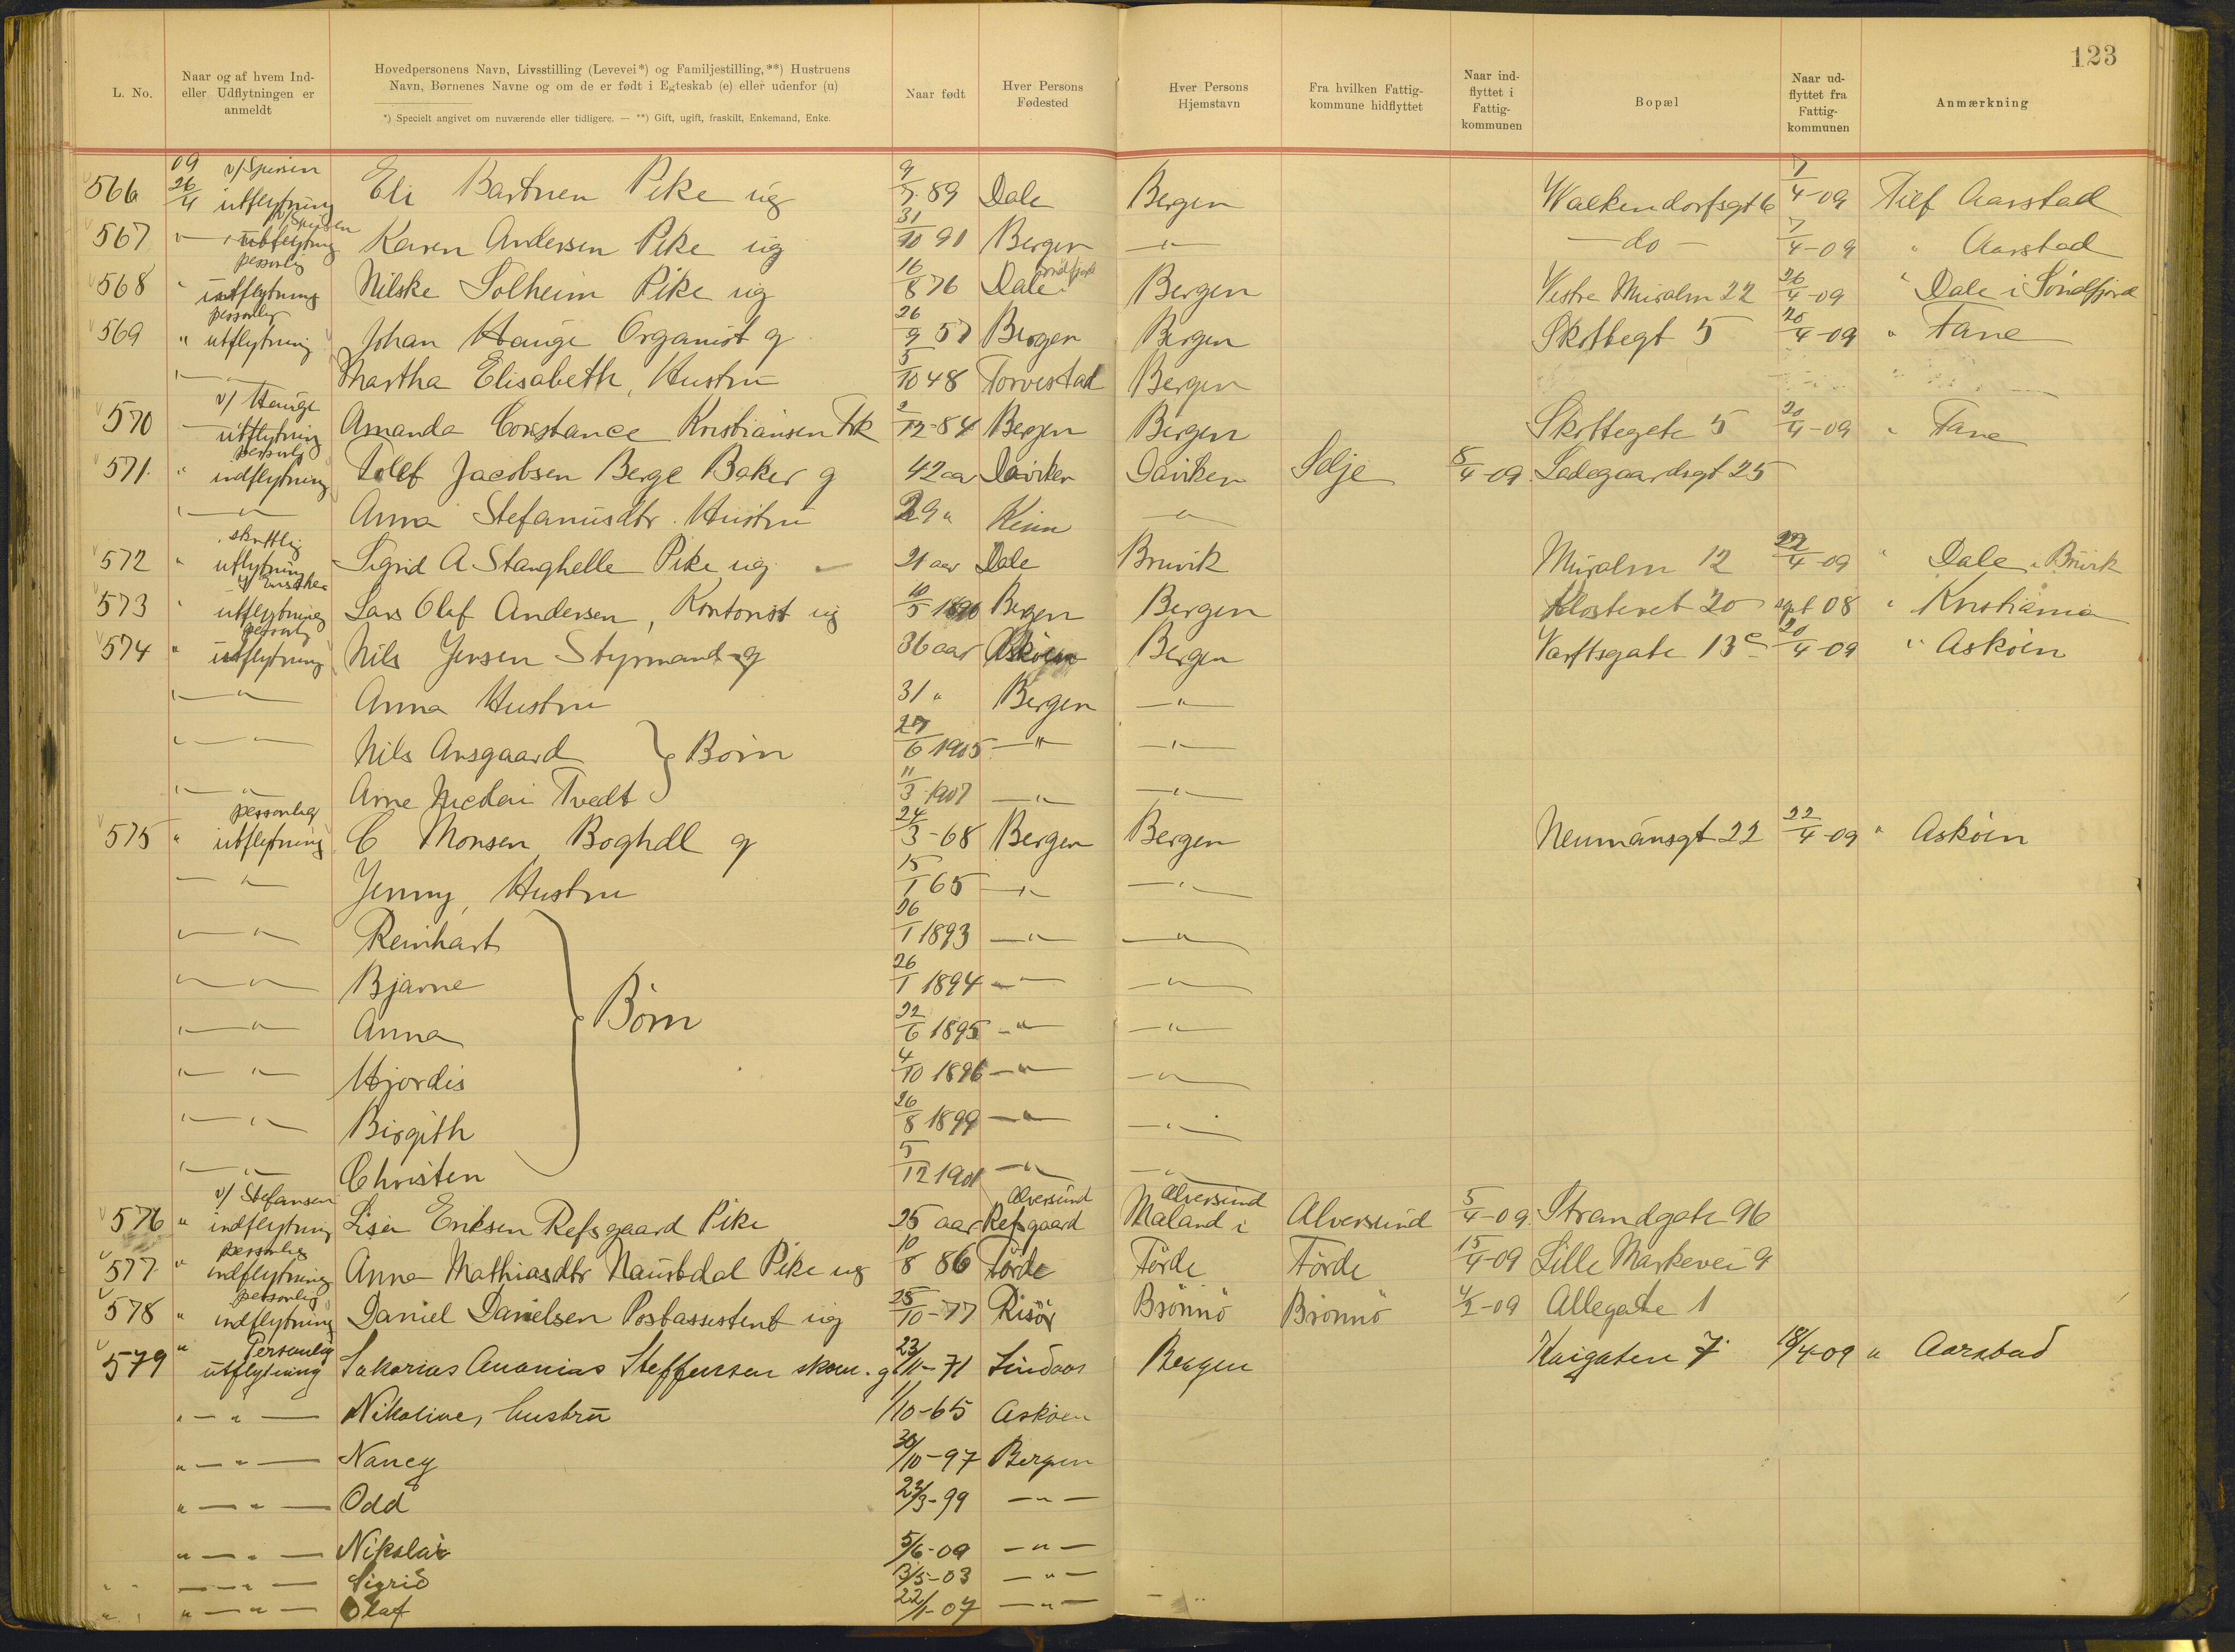 123
L. No. Naar og af hvem Ind- eller Udflytningen er anmeldt Hovedpersonens Navn, Livsstilling (Levevei*) og Familjestilling,**) Hustruens Navn, Børnenes Navne og om de er født i Egteskab (e) eller udenfor (u) Naar født Hver Persons Fødested Hver Persons Hjemstavn Fra hvilken Fattig- kommune hidflyttet Naar ind- flyttet i Fattig- kommunen Bopæl Naar ud- flyttet fra Fattig- kommunen Anmærkning
*) Specielt angivet om nuværende eller tidligere. — **) Gift, ugift, fraskilt, Enkemand, Enke.
566 09 26/4 utflytning Eli Pike ug 9/7 89 Dale Bergen Walkendorfsgt 6 7/4-09 Tilf Aarstad
567 " utflytning Karen Andersen Pike ug 31/10 91 Bergen —"— —do— 7/4-09 " Aarstad
568 " personlig utflytning Nilske Solheim Pike ug 16/8 76 Dale i Søndfjord Bergen Vestre Muralm 22 26/4-09 " Dale i Søndfjord
569 " personlig utflytning Johan Hauge Organist g 26/9 57 Bergen Bergen Skottegt 5 20/4-09 " Fane
—"— Martha Elisabeth, Hustru 5/10 48 Torvestad Bergen
570 v/ Hauge utflytning Amanda Constance Kristiansen Frk 2/12-84 Bergen Bergen Skottegate 5 20/4-09 " Fane
571 " personlig indflytning Tollef Jacobsen Berge Baker g 42 aar Daviken Daviken Selje 8/4-09 Ladegaardsgt 25
—"— Anna Stefanusdtr. Hustru 29 " Kinn —"—
572 " skriftlig utflytning Sigrid A. Stanghelle Pike ug 21 aar Dale Bruvik Muralm 12 22/4-09 " Dale i Bruvik
573 " utflytning Lars Olaf Andersen, Kontorist ug 10/5 1890 Bergen Bergen Klosteret 20 sept 08 " Kristiania
574 " personlig utflytning Nils Jensen Styrmand g 36 aar Askøen Bergen Varftsgate 13c 20/4-09 " Askøen
"—"— Anna Hustru 31 " Bergen —"—
"—"— Nils Ansgaard } Børn 27/6 1905 —"— —"—
"—"— Arne Nicolai Tvedt 11/3 1907 —"— —"—
575 " personlig utflytning C Monsen Boghdl g 24/3-68 Bergen Bergen Neumansgt 22 22/4-09 " Askøen
—"— Jenny, Hustru 15/1 65 —"— —"—
"—"— Reinhart 26/1 1893 —"— —"—
"—"— Bjarne 26/1 1894 —"— —"—
"—"— Anna Børn 22/6 1895 —"— —"—
"—"— Hjordis 4/10 1896 —"— —"—
"—"— Birgith 26/8 1899 —"— —"—
"—"— Christen 5/12 1901 —"— —"—
576 " v/ Stefansen indflytning Lisa Eriksen Refsgaard Pike 25 aar Refsgaard Alversund Maland i Alversund Alversund 5/4-09 Strandgate 96
577 " personlig indflytning Anna Mathiasdtr Naustdal Pike ug 10/8 86 Førde Førde Førde 15/4-09 Lille Markevei 9
578 " personlig indflytning Daniel Danielsen Postassistent ug 25/10-77 Risør Brønnø Brønnø 4/2-09 Allegate 1
579 " Personlig utflytning Sakarias Ananias Steffensen skom. g 23/11-71 Lindaas Bergen Kaigaten 7 18/4-09 " Aarstad
"—"— Nikoline, hustru 1/10-65 Askøen
"—"— Nancy 30/10-97 Bergen
"—"— Odd 22/3-99 —"—
"—"— Nikolai 5/6-09 —"—
"—"— Sigrid 13/5-03 —"—
"—"— Olaf 22/1-07 —"—